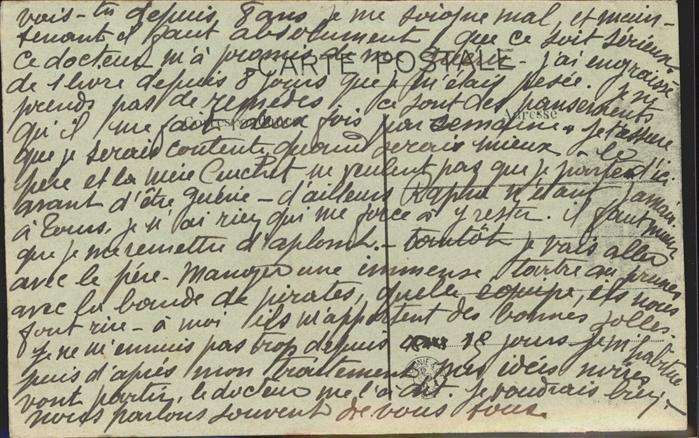 vois-tu depuis 8 ans je me soigne mal, et main-
tenant il faut absolument que ce soit sérieux -
ce docteur m'a promis de me j'ai engraissé
CARTE POSTALE
de 1 livre depuis 8 jours que je m'étais pesée. je ne
prends pas de remèdes, ce sont des pansements
Correspondance
Adresse
qu'il me fait deux fois par semaine. je t'assure
que je serais contente quand serais mieux - le
père et la mère ne veulent pas que je parte d'ici
avant d'être guérie - d'ailleurs n'étant jamais
à Tours, je n'ai rien qui me force à y rester. il faut mieux
que je me remettre d'aplomb. - tantôt je vais aller
avec le père manger une immense tarte aux prunes
avec la bande de pirates, quelle equipe, ils nous
font rire - à moi ils m'apportent des bonnes
je ne m'ennuis pas trop depuis 15 jours je m'habitue
puis d'après mon traitement mes idées noires
vont partir, le docteur me l'a dit. je voudrais bien -
nous parlons souvent de vous tous.